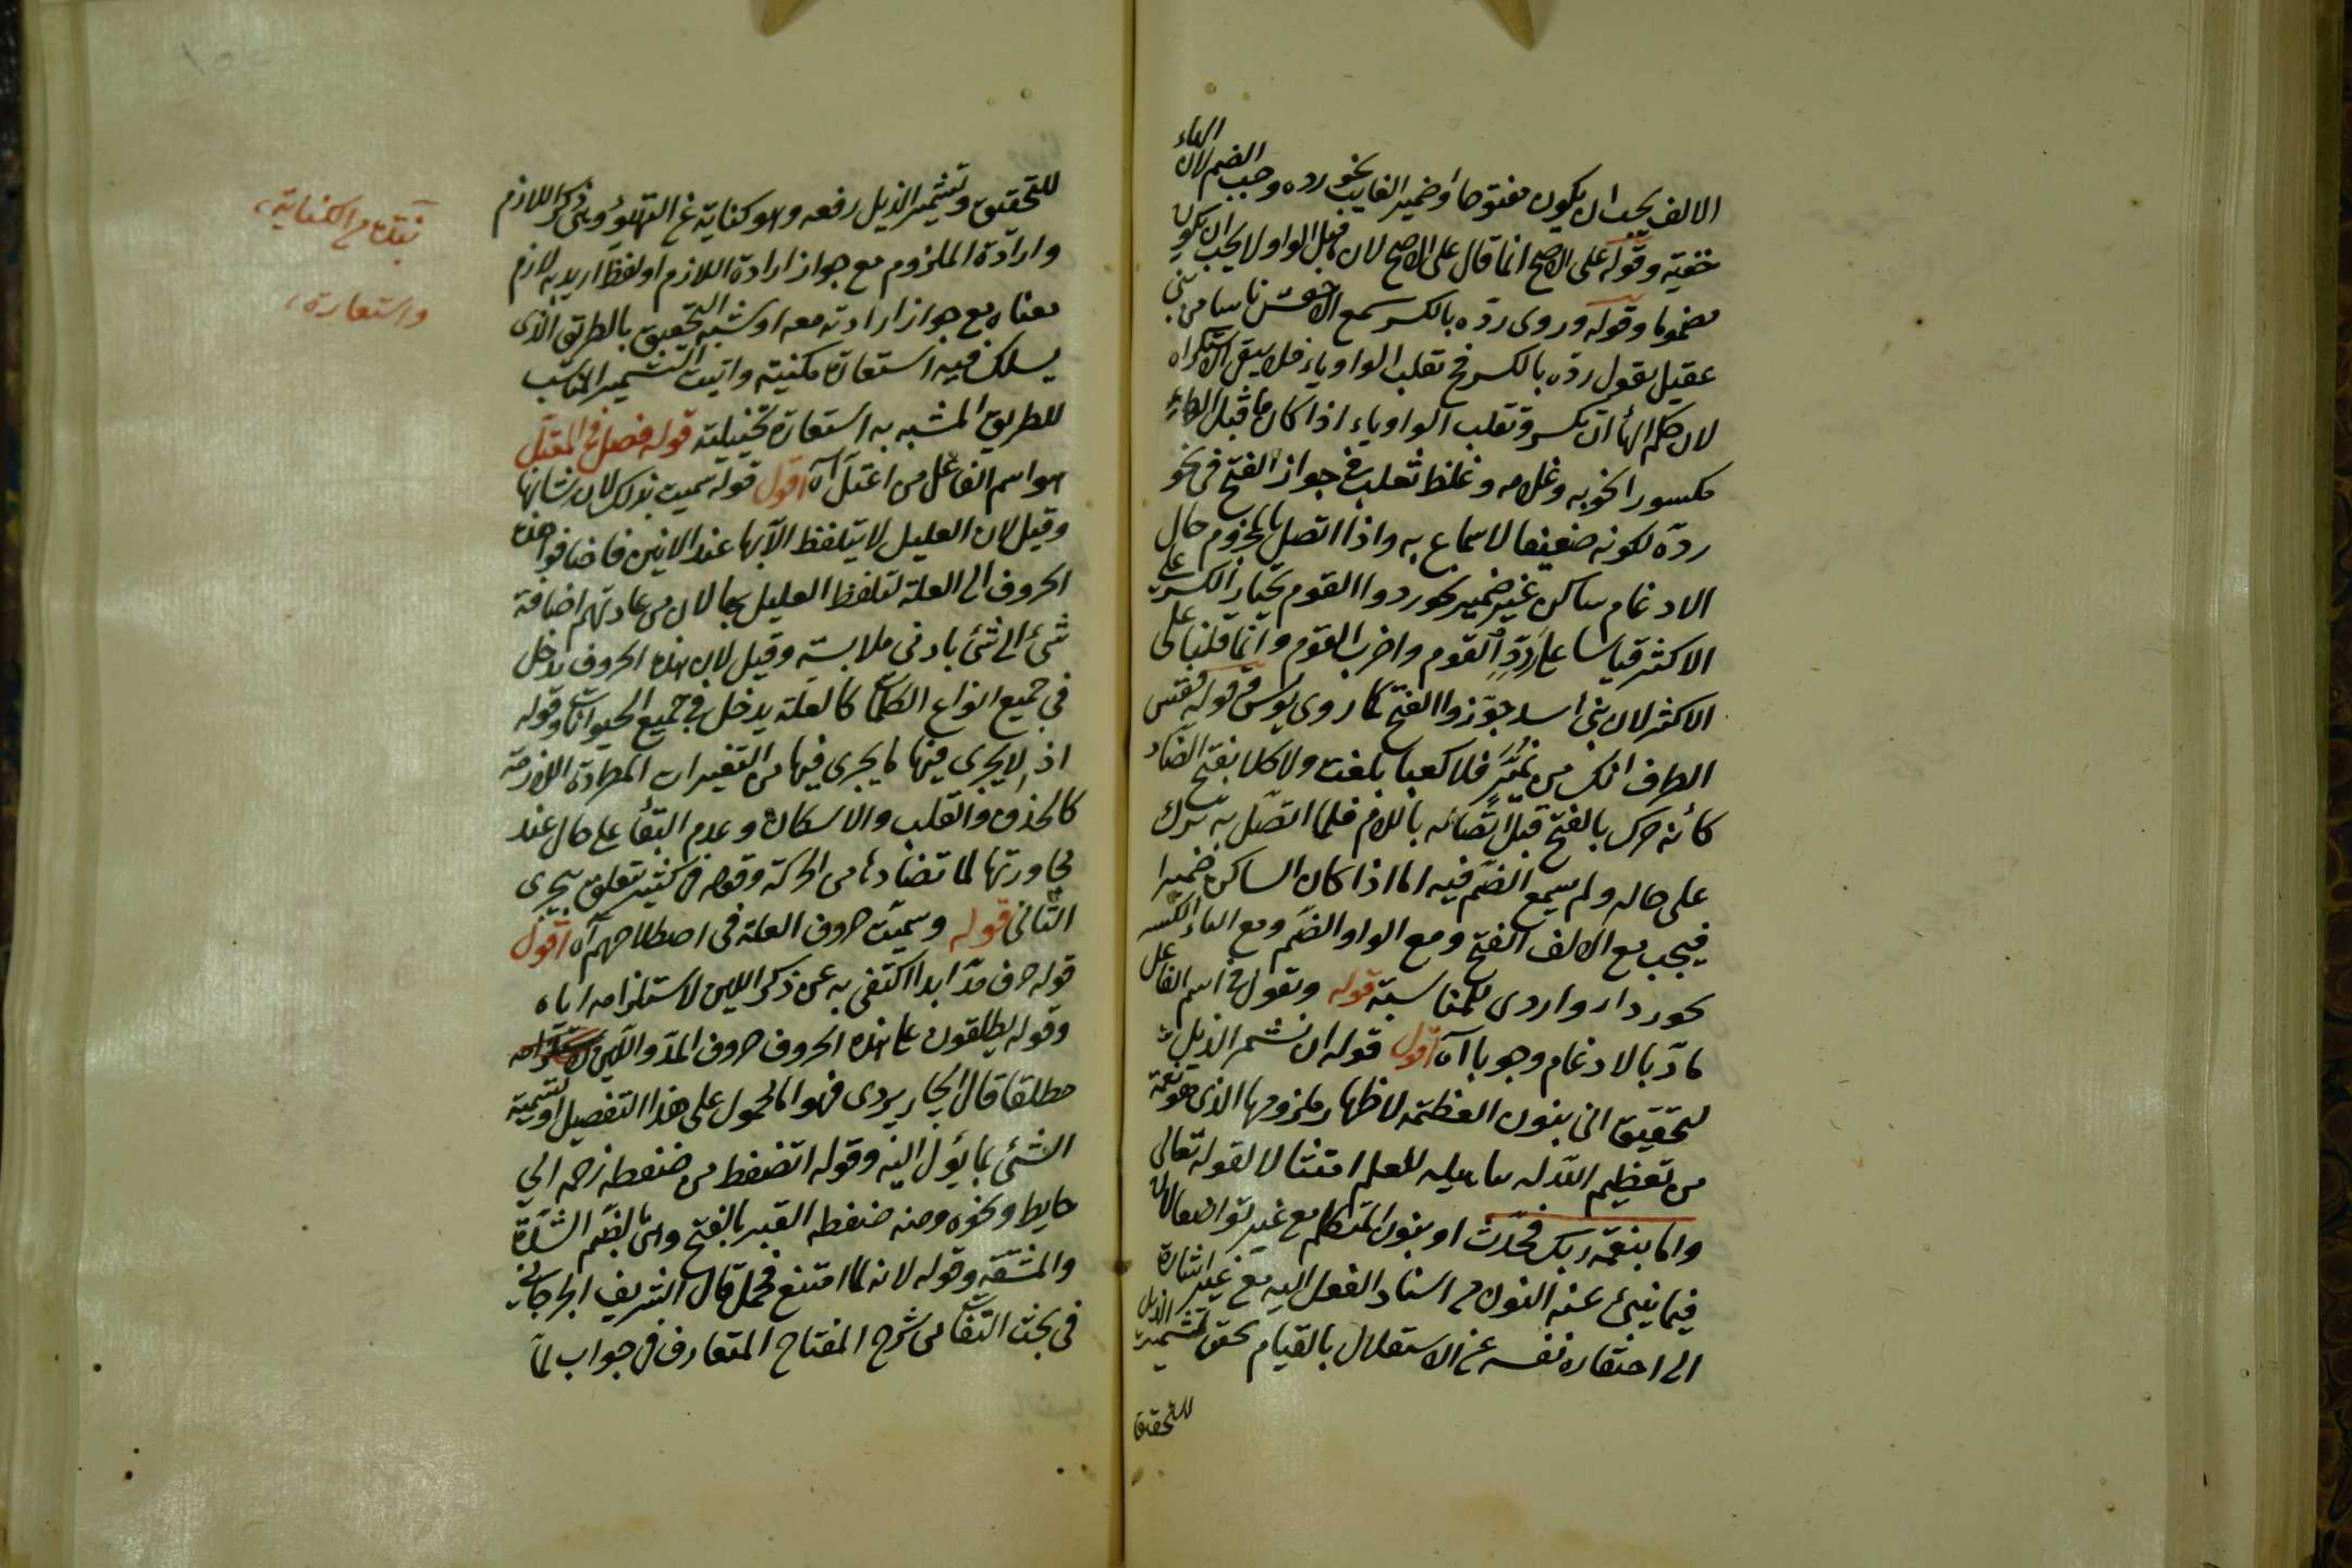 الالف يجب ان يكون مفتوحا وضمير الغايب نحو رده وجب الضم لان الهاء
خفية وقوله على الاصح انما قال على الاصح لان ما قبل الواو لا يجب ان يكون
مضموما وقوله وروى رده بالكسر سمع الاخفش ناسا من بنى
عقيل يقول رده بالكسر فح تقلب الواو ياء فلا يبقى الاستكراه
لان حكم الهاء ان تكسر وتقلب الواو ياء اذا كان ما قبل الهاء
مكسورا نحو به وغلامه وغلط ثعلب فى جواز الفتح فى نحو
رده لكونه ضعيفا لا سماع به واذا اتصل بالمجزوم حال
الادغام ساكن غير ضمير نحو ردوا القوم يختار الكسر على
الاكثر قياسا على اردد القوم واضرب القوم وانما قلنا على
الاكثر لان بنى اسد جوزوا الفتح كما روى يونس قوله فغض
الطرف انك من نمير فلا كعبا بلغت ولا كلابا بفتح الضاد
كأنه حرك بالفتح قبل اتصاله باللام فلما اتصل به ترك
على حاله ولم يسمع الضم فيه اما اذا كان الساكن ضميرا
فيجب مع الالف الفتح ومع الواو الضم ومع الياء الكسر
نحو ردا ردوا ردى للمناسبة قوله وتقول فى اسم الفاعل
ماد بالادغام وجوبا آه اقول قوله ان نشمر الذيل
لتحقيق اتى بنون العظمة لاظهار ملزومها الذى هو نعمة
من تعظيم الله له بتأهيله للعلم امتثالا لقوله تعالى
واما بنعمة ربك فحدث او بنون المتكلم مع غيره تواضعا لان
فيما ينبئ عنه النون من اسناد الفعل اليه مع غيره اشارة
الى احتقاره نفسه عن الاستقلال بالقيام بحق تشمير الذيل
للتحقيق
للتحقيق وتشمير الذيل رفعه وهو كناية عن التهيؤ وبنى ذكر اللازم
وارادة الملزوم مع جواز ارادة اللازم او لفظ اريد به لازم
معناه مع جواز ارادته معه او شبه التحقيق بالطريق الذى
يسلك فيه استعارة مكنية واثبت التشمير المناسب
للطريق المشبه به استعارة تخييلية قوله فصل فى المعتل
هو اسم الفاعل من اعتل آه اقول قوله سميت بذلك لان شانها
وقيل لان العليل لا يتلفظ الا بها عند الانين فاضافوا هذه
الحروف الى العلة لتلفظ العليل بها لان من عادتهم اضافة
شئ الى شئ بادنى ملابسة وقيل لان هذه الحروف يدخل
فى جميع انواع الكلمات كالعلة يدخل فى جميع الحيوانات وقوله
اذ لا يجرى فيها ما يجرى فيها من التغييرات المطردة اللازمة
كالحذف والقلب والاسكان وعدم البقاء على حال عند
مجاورتها لما تضادها من الحركة وقوله فى كثير تعلق بيجرى
الثانى قوله وسميت حروف العلة فى اصطلاحهم آه اقول
قوله حرف مد ابدا اكتفى به عن ذكر اللين لاستلزامه اياه
وقوله يطلقون على هذه الحروف حروف المد واللين
مطلقا قال الجاربردى فهو اما محمول على هذا التفصيل او تسمية
الشئ بما يؤل اليه وقوله انضغط من ضغطه زحمه الى
حايط ونحوه ومنه ضغطه القبر بالفتح واما بالضم الشدة
والمشقة وقوله لانه لما امتنع فحمل قال الشريف الجرجانى
فى بحث التقا من شرح المفتاح المتعارف فى جواب لما
الكناية
واستعارة